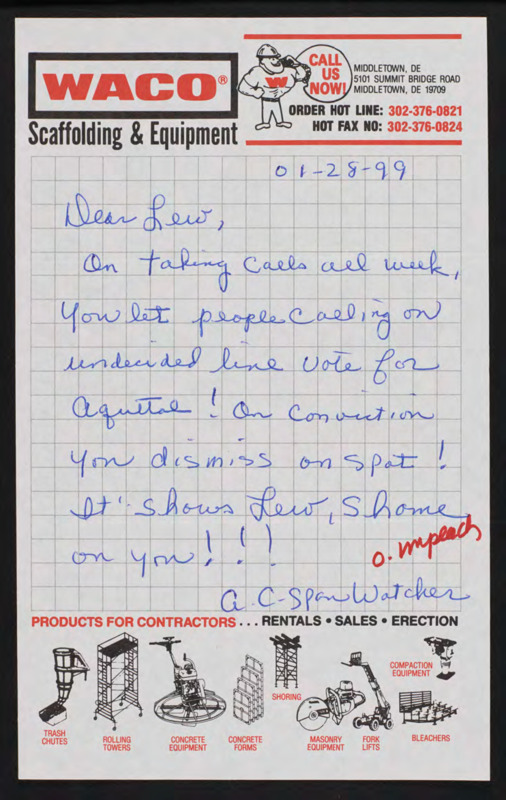 WACO®
Scaffolding & Equipment
CALL
US
NOW!
W
MIDDLETOWN, DE
5101 SUMMIT BRIDGE ROAD
MIDDLETOWN, DE 19709
ORDER HOT LINE: 302-376-0821
HOT FAX NO: 302-376-0824
01-28-99
Dear Lew,
On taking calls all week,
You let people calling on
undecided line vote for
aquittal! On Conviction
you dismiss on spot!
It shows Lew, Shame
on you!!!
o. impeach
a C-Span Watcher
PRODUCTS FOR CONTRACTORS... RENTALS • SALES • ERECTION
TRASH
CHUTES
ROLLING
TOWERS
CONCRETE
EQUIPMENT
CONCRETE
FORMS
SHORING
MASONRY
EQUIPMENT
FORK
LIFTS
COMPACTION
EQUIPMENT
BLEACHERS